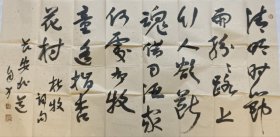 清明时節
雨紛〻路上
行人欲斷
魂借问酒家
何處有牧
童遥指杏
花村
杜牧
詩句
長安